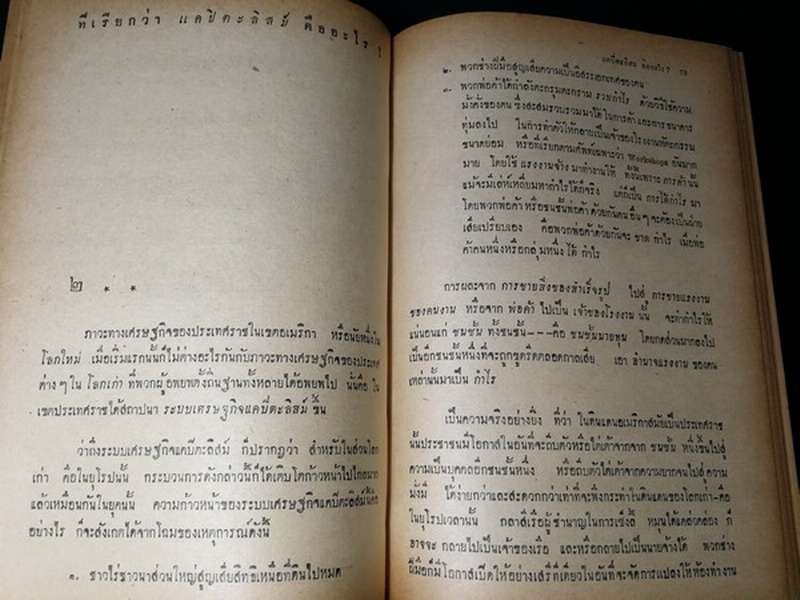 ที่เรียกว่า แคปิตะลิสม์ คืออะไร ?
๒ * *
ภาวะทางเศรษฐกิจของประเทศราชในเขตอเมริกา หรือนัยหนึ่งใน
โลกใหม่ เมื่อเริ่มแรกนั้นก็ไม่ต่างอะไรกันกับภาวะทางเศรษฐกิจของประเทศ
ต่าง ๆ ใน โลกเก่า ที่พวกผู้อพยพตั้งถิ่นฐานทั้งหลายได้อพยพไป นั่นคือ ใน
เขตประเทศราชได้สถาปนา ระบบเศรษฐกิจแคปิตะลิสม์ ขึ้น
ว่าถึงระบบเศรษฐกิจแคปิตะลิสม์ ก็ปรากฏว่า สำหรับในส่วนโลก
เก่า คือในยุโรปนั้น กระบวนการดังกล่าวนี้ก็ได้เติบโตก้าวหน้าไปไกลมาก
แล้วเหมือนกันในยุคนั้น ความก้าวหน้าของระบบเศรษฐกิจแคปิตะลิสม์นี้คือ
อย่างไร ก็จะสังเกตได้จากโฉมของเหตุการณ์ดังนี้
๑. ชาวไร่ชาวนาส่วนใหญ่สูญเสียสิทธิเหนือที่ดินไปหมด
แคปิตะลิสม์ คืออะไร ?
๒. พวกช่างฝีมือสูญเสียความเป็นอิสระเอกเทศของตน
๓. พวกพ่อค้าได้กำลังตะกรุมตะกราม รวบกำไร ด้วยวิธีใช้ความ
มั่งคั่งของตน ซึ่งสะสมรวบรวมมาได้ ในการค้า และการ ธนาคาร
ทุ่มลงไป ในการทำตัวให้กลายเป็นเจ้าของโรงงานหัตถกรรม
ขนาดย่อม หรือที่เรียกตามศัพท์เฉพาะว่า Workshops อันมาก
มาย โดยใช้ แรงงานจ้าง มาทำงานให้ ทั้งนี้เพราะ การค้า นั้น
แม้จะมีเล่ห์เหลี่ยมหากำไรได้ก็จริง แต่ก็เป็น การได้กำไร มา
โดยพวกพ่อค้า หรือชนชั้นพ่อค้า ด้วยกันคนอื่น ๆ จะต้องเป็นฝ่าย
เสียเปรียบเอง คือพวกพ่อค้าด้วยกันจะ ขาด กำไร เมื่อพ่อ
ค้าคนหนึ่งหรือกลุ่มหนึ่ง ได้ กำไร
การผละจาก การขายสิ่งของสำเร็จรูป ไปสู่ การขายแรงงาน
ของคนงาน หรือจาก พ่อค้า ไปเป็น เจ้าของโรงงาน นั้น จะทำกำไรให้
แน่นอนแก่ ชนชั้น ทั้งชนชั้น---คือ ชนชั้นนายทุน โดยกดส่วนมากลงไป
เป็นอีกชนชั้นหนึ่งที่จะถูกขูดรีดตลอดกาลเสีย เอา อำนาจแรงงาน ของคน
เหล่านั้นมาเป็น กำไร
เป็นความจริงอย่างยิ่ง ที่ว่า ในดินแดนอเมริกาสมัยเป็นประเทศราช
นั้นประชาชนมีโอกาสในอันที่จะถีบตัวหรือไต่เต้าจากจาก ชนชั้น หนึ่งขึ้นไปสู่
ความเป็นบุคคลอีกชนชั้นหนึ่ง หรือถีบตัวไต่เต้าจากความยากจนไปสู่ ความ
มั่งมี ได้ง่ายกว่าและสะดวกกว่าเท่าที่จะพึงกระทำในดินแดนของโลกเก่า–คือ
ในยุโรปเวลานั้น กลาสีเรือผู้ชำนาญในการเซ็งลี้ หมุนได้แคล่วคล่อง ก็
อาจจะ กลายไปเป็นเจ้าของเรือ และหรือกลายไปเป็นนายจ้างได้ พวกช่าง
ฝีมือก็มีโอกาสเปิดให้อย่างเสรีทีเดียวในอันที่จะจัดการแปลงให้ห้องทำงาน